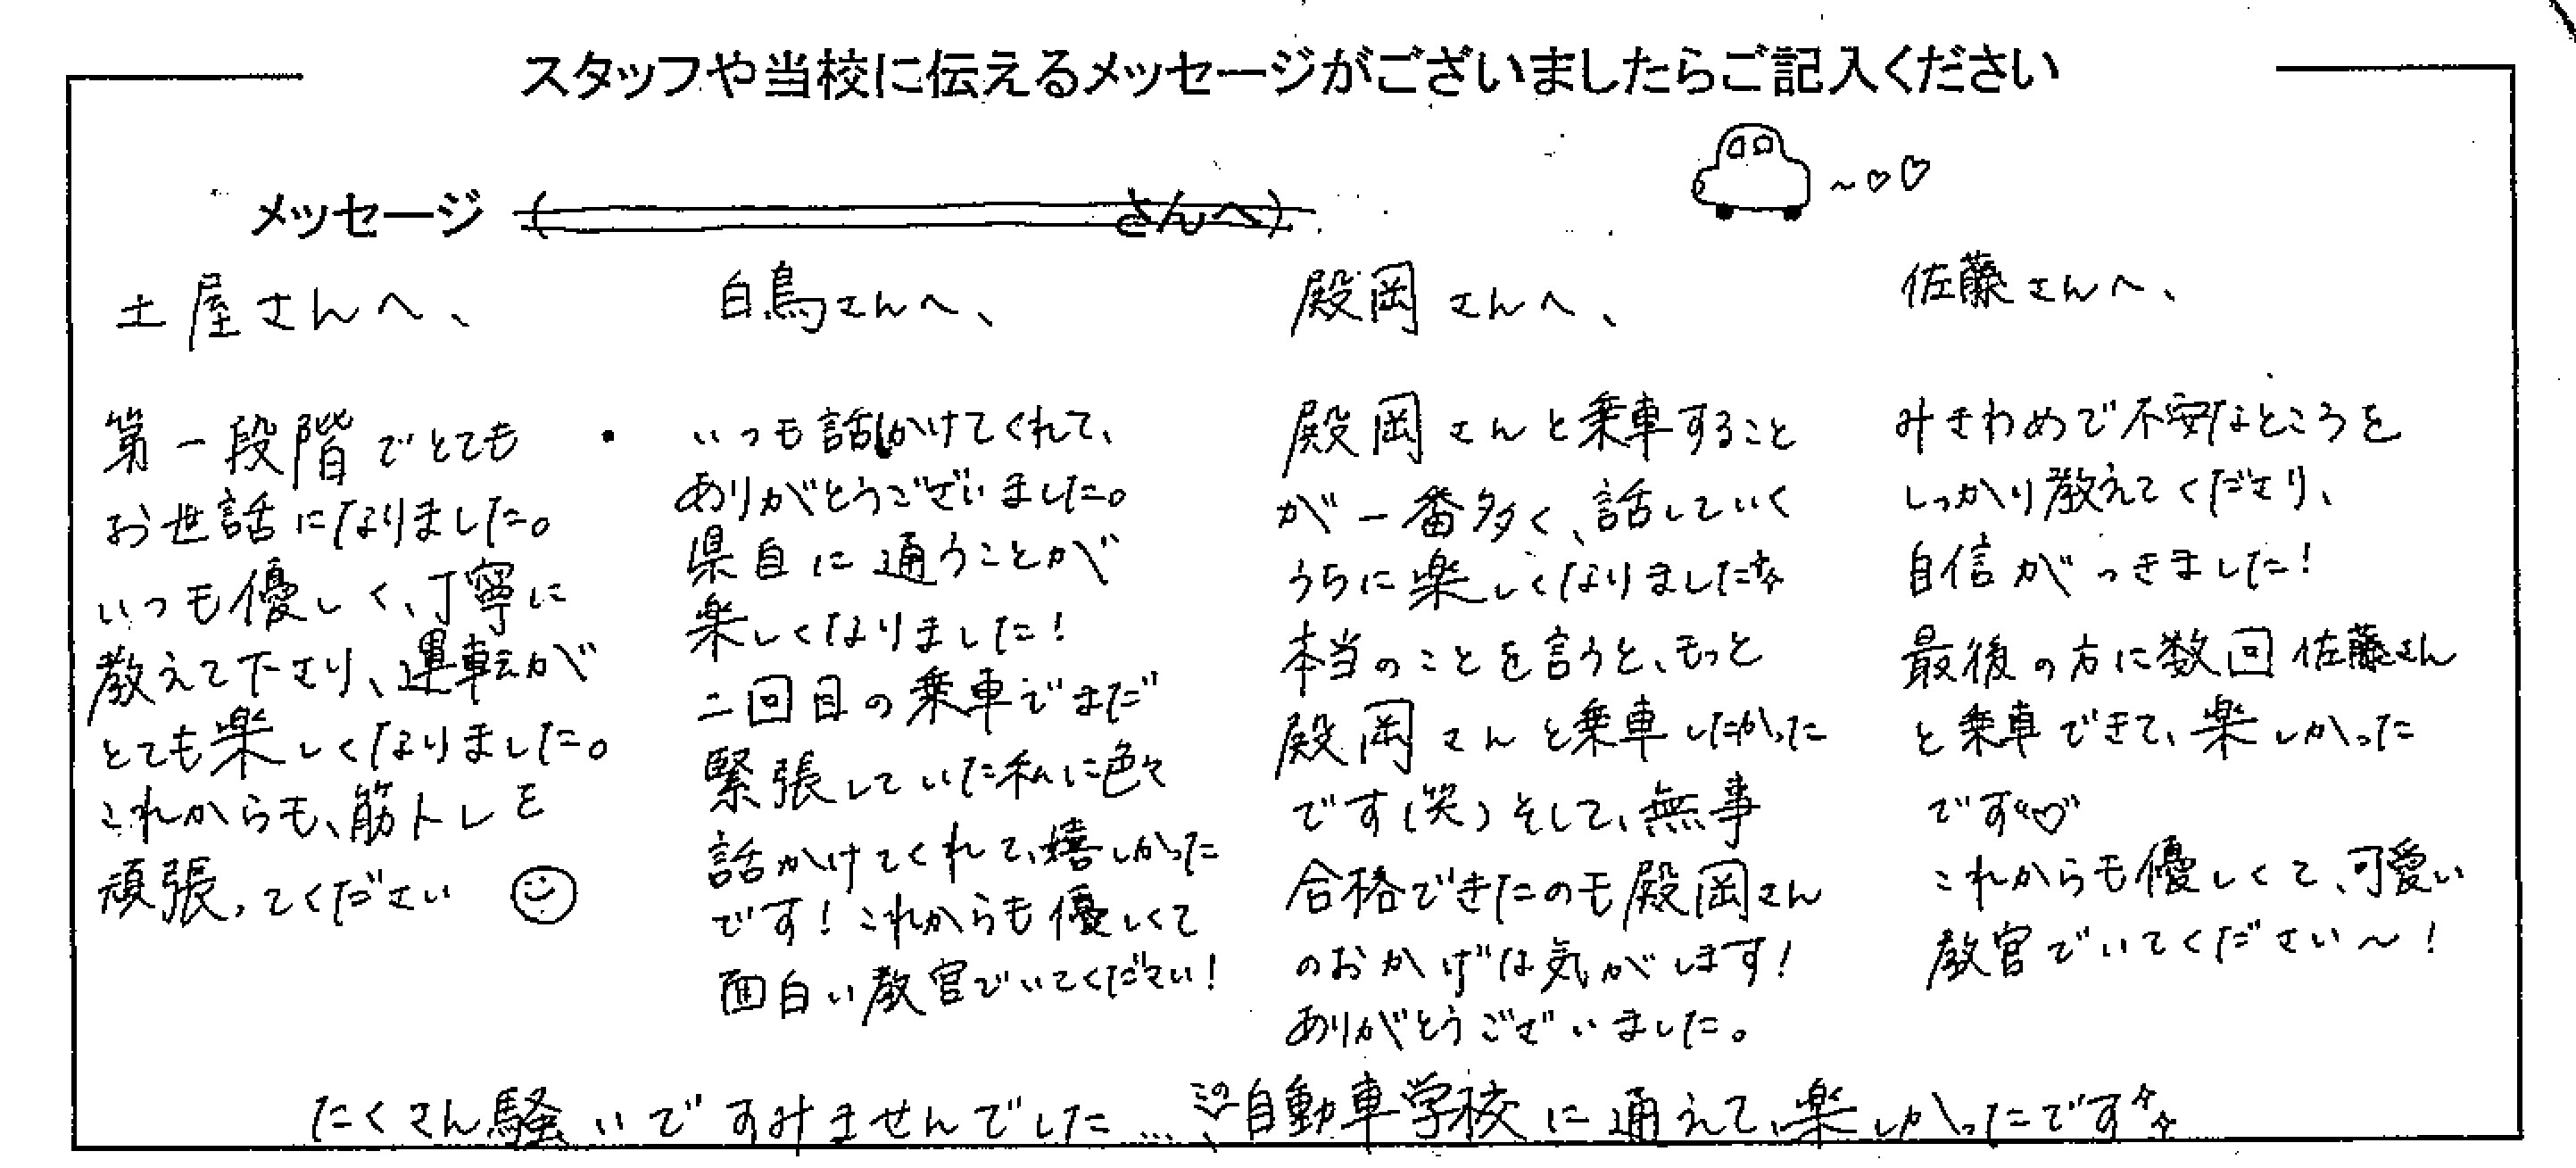 スタッフや当校に伝えるメッセージがございましたらご記入ください
メッセージ (さんへ)
土屋さんへ、
第一段階でとても
お世話になりました。
いつも優しく、丁寧に
教えて下さり、運転が
とても楽しくなりました。
これからも、筋トレを
頑張ってください
白鳥さんへ、
いつも話しかけてくれて、
ありがとうございました。
県自に通うことが
楽しくなりました!
二回目の乗車でまだ
緊張していた私に色々
話かけてくれて、嬉しかった
です!これからも優しくて
面白い教官でいてください!
殿岡さんへ、
殿岡さんと乗車すること
が一番多く、話していく
うちに楽しくなりました
本当のことを言うと、もっと
殿岡さんと乗車したかった
です(笑)そして、無事
合格できたのも殿岡さん
のおかげな気がします!
ありがとうございました。
佐藤さんへ、
みきわめで不安なところを
しっかり教えてくださり、
自信がつきました!
最後の方に数回佐藤さん
と乗車できて、楽しかった
です♡
これからも優しくて、可愛い
教官でいてください〜!
たくさん騒いですみませんでした...この自動車学校に通えて、楽しかったです